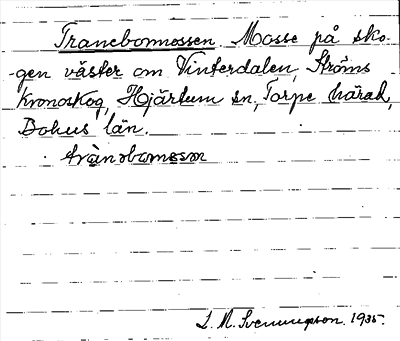 Tranebomossen. Mosse på sko-
gen väster om Vinterdalen, Ströms
Kronoskog, Hjärtum sn, Torpe härad,
Bohus län.
L. M. Svenungsson. 1935.